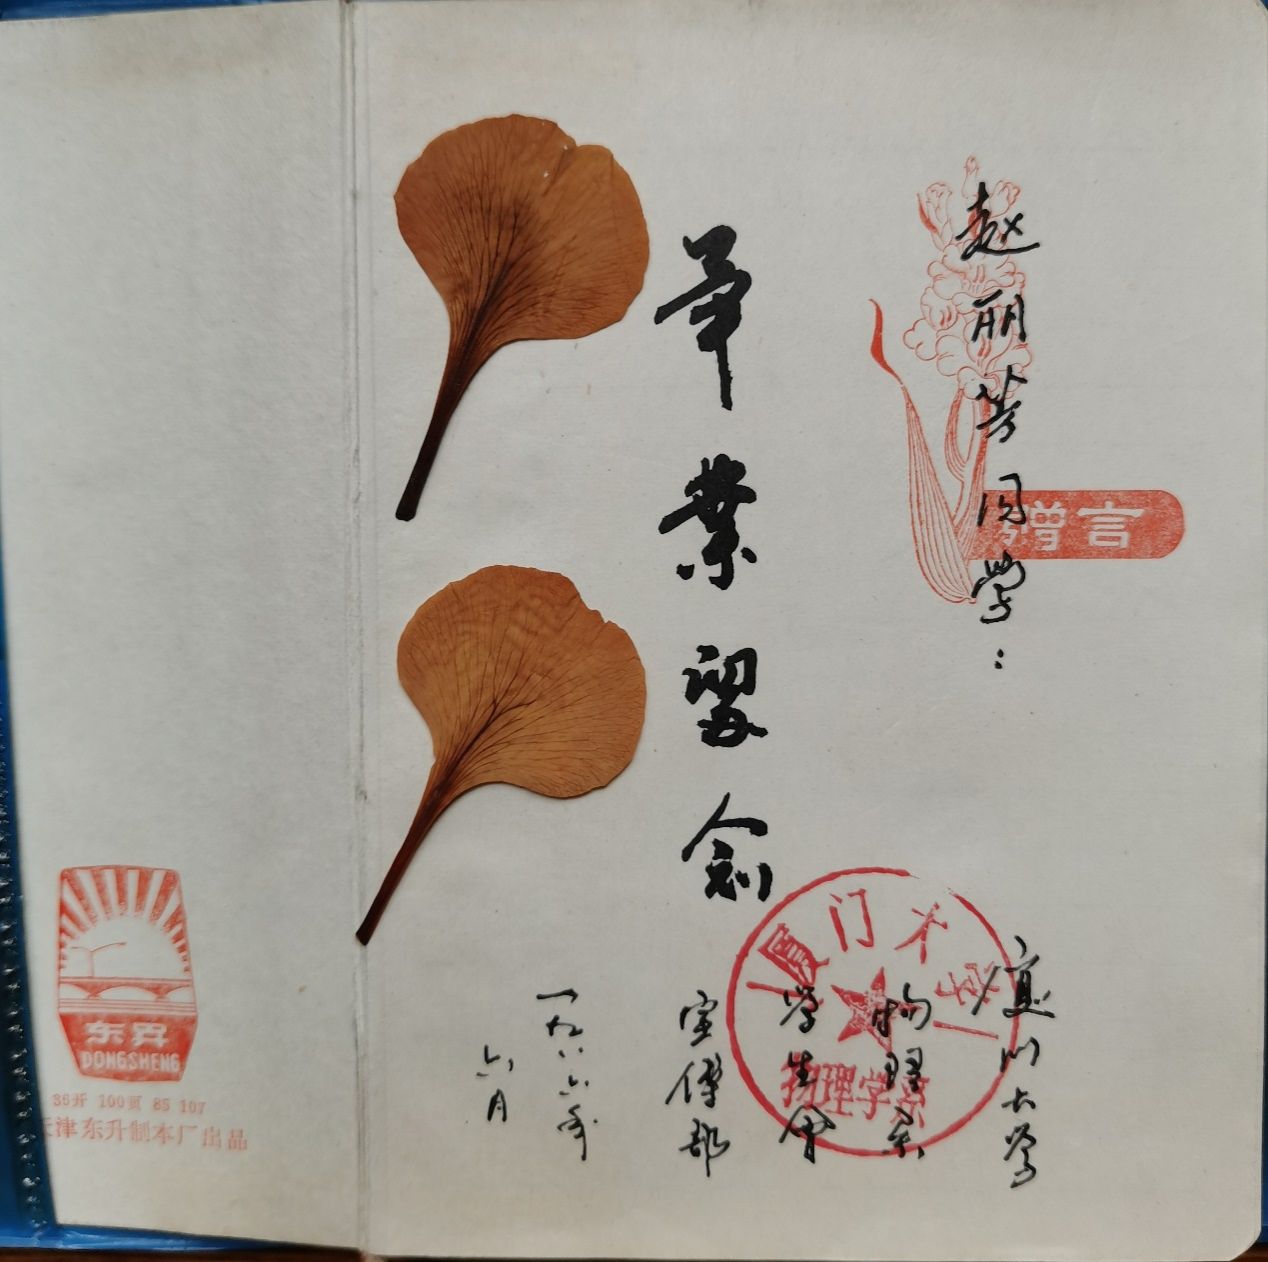 赵丽芳同学：
赠言
毕業留念
厦门大学
物理系
学生会
宣傳部
一九八六年
六月
厦门大学
物理学系
东昇
DONGSHENG
35开 100页 85 107
天津东升制本厂出品